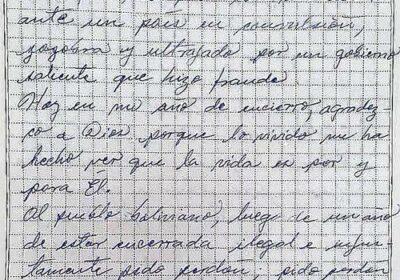 ante un país en convulsión,
zozobra y ultrajado por un gobierno
saliente que hizo fraude
Hoy en mi año de encierro, agradez-
co a Dios porque lo vivido me ha
hecho ver que la vida es por y
para Él.
Al pueblo boliviano, luego de un año
de estar encerrada ilegal e injus-
tamente pido perdón, pido perdón